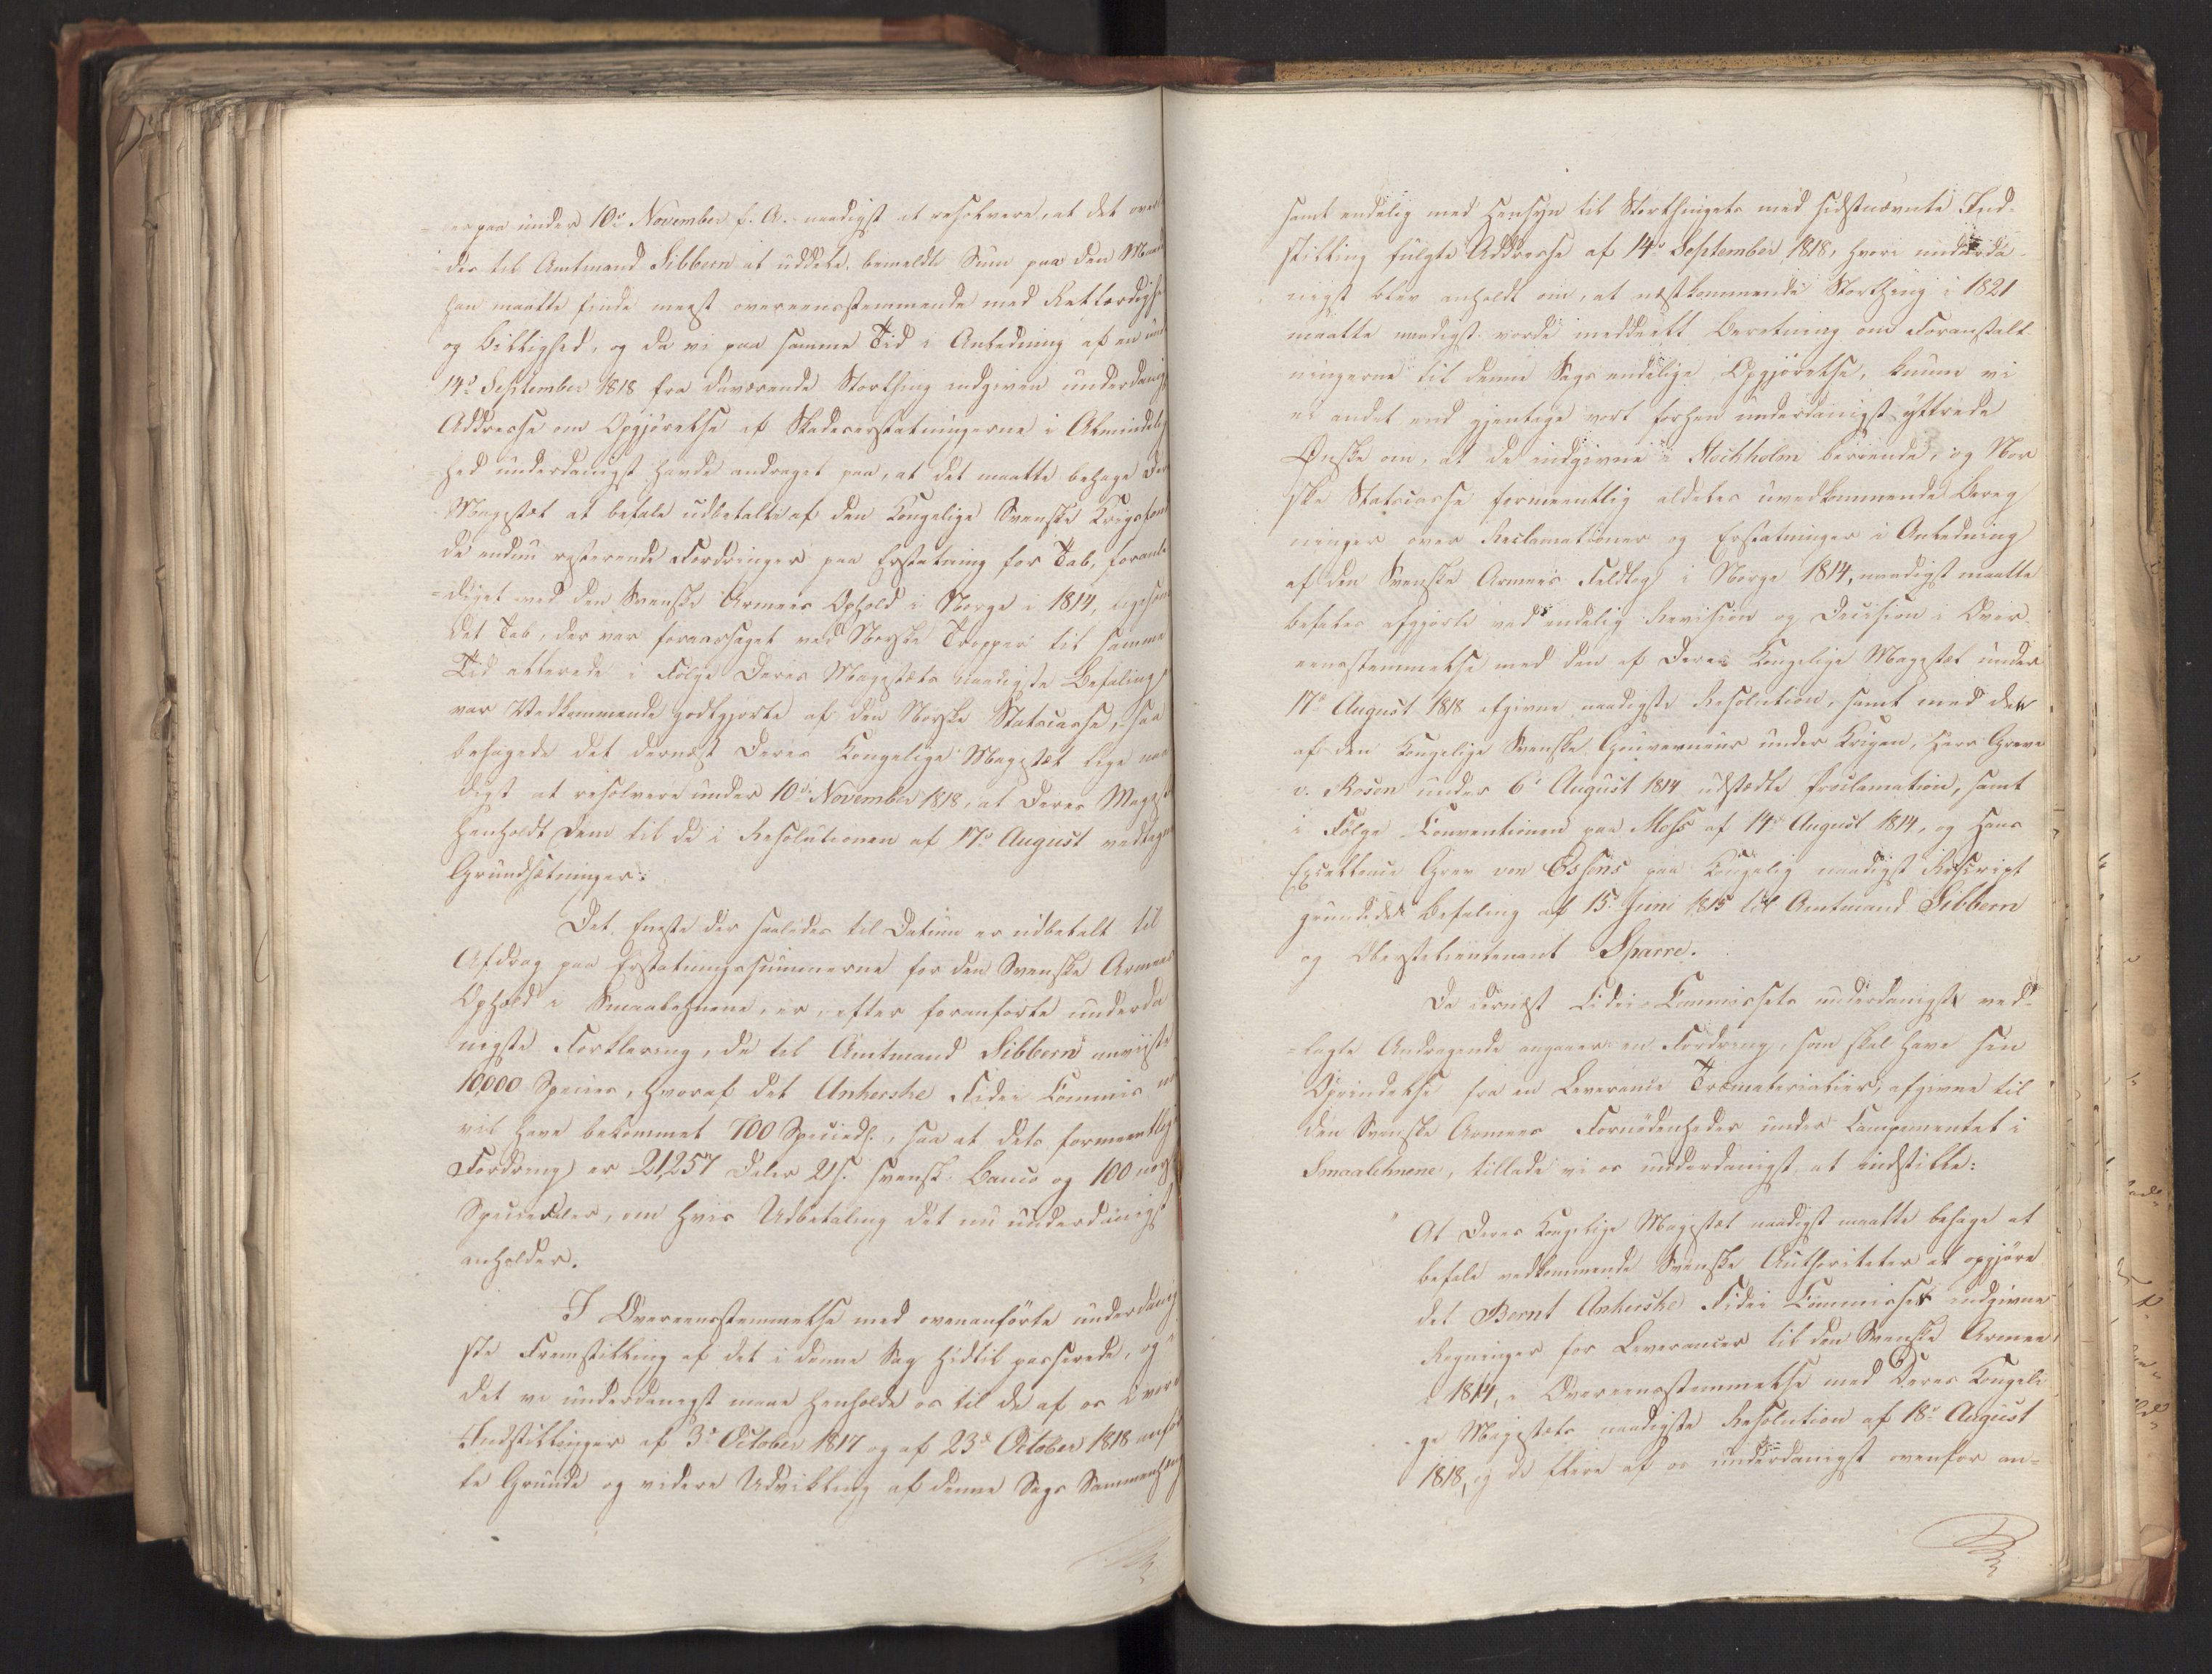 -erpaa under 10de November f. A. naadigst at resolvere, at det over
des til Amtmand Sibbern at uddele bemeldte Sum paa den Maad
han maatte finde meest overeensstemmende med Retfærdighed
og Billighed, og da vi paa samme Tid i Anledning af en under
14de September 1818 fra daværende Storthing indgiven underdanig
Addresse om Opgjørelse af Skadeserstatningerne i Almindelig
hed underdanigst havde andraget paa, at det maatte behage Deres
Majestæt at befale udbetalt af den Kongelige Svenske Krigsfond
de endnu resterende Fordringer paa Erstatning for Tab, foranle
-diget ved den Svenske Armees Ophold i Norge i 1814, ligesom
det Tab, der var foraarsaget ved Norske Tropper til samme
Tid allerede i Følge Deres Majestæts naadigste Befaling
var Vedkommende godtgjorte af den Norske Statscasse, saa
behagede det dernæst Deres Kongelige Majestæt lige naa
digst at resolvere under 10de November 1818, at Deres Majestæt
henholdt Dem til de i Resolutionen af 17de August vedtagne
Grundsætninger.
Det Eneste der saaledes til Datum er udbetalt til
Afdrag paa Erstatningssummerne for den Svenske Armees
Ophold i Smaalehnene, er, efter foranførte underda
nigste Forklaring, de til Amtmand Sibbern anviiste
10,000 Species, hvoraf det Ankerske Fidei Commis nu
vil have bekommet 700 Speciesdl., saa at dets formeentlige
Fordring er 21,257 Daler 21 s. svensk Banco og 100 norske
Speciesdaler, om hvis Udbetaling det nu underdanigst
anholder.
I Overeensstemmelse med ovenanførte underdanig
ste Fremstilling af det i denne Sag hidtil passerede, og
det vi underdanigst maae henholde os til de af os i vore
Indstillinger af 3de October 1817 og af 23de October 1818 anfør
te Grunde og videre Udvikling af denne Sags Sammenhæng
samt endelig med Hensyn til Storthingets med sidstnævnte Ind-
stilling fulgte Addresse af 14de September 1818, hvori underda-
nigst blev anholdt om, at næstkommende Storthing i 1821
maatte naadigst vorde meddeelt Beretning om Foranstalt
ningerne til denne Sags endelige Opgjørelse, kunne vi
ei andet end gjentage vort forhen underdanigst yttrede
Ønske om, at de indgivne i Stockholm beroende, og Nor
ske Statscasse formeentlig aldeles uvedkommende Bereg
ninger over Reclamationer og Erstatninger i Anledning
af den Svenske Armees Feldtog i Norge 1814, naadigst maatte
befales afgjorte ved endelig Revision og Decision i Over
eensstemmelse med den af Deres Kongelige Majestæt under
17de August 1818 afgivne naadigste Resolution, samt med den
af den Kongelige Svenske Gouverneur under Krigen, Herr Greve
v. Rosen under 6te August 1814 udstædte Proclamation, samt
i Følge Conventionen paa Moss af 14de August 1814, og Hans
Excellence Grev von Essens paa Kongelig naadigst Rescript
grundede Befaling af 15. Juni 1815 til Amtmand Sibbern
og Oberstelieutenant Sparre.
Da dernæst Fidei-Commissets underdanigst ved-
-lagte Andragende angaaer en Fordring, som skal have sin
Oprindelse fra en Leverance Træmaterialier, afgivne til
den Svenske Armees Fornødenheder under Campementet i
Smaalehnene, tillade vi os underdanigst at indstille:
" At Deres Kongelige Majestæt naadigst maatte behage at
befale vedkommende Svenske Authoriteter at opgjøre
det Bernt Ankerske Fidei Commisses indgivne
Regninger for Leverancer til den Svenske Armee
i 1814, i Overeensstemmelse med Deres Kongeli
ge Majestæts naadigste Resolution af 18de August
1818, og de flere af os underdanigst ovenfor an-